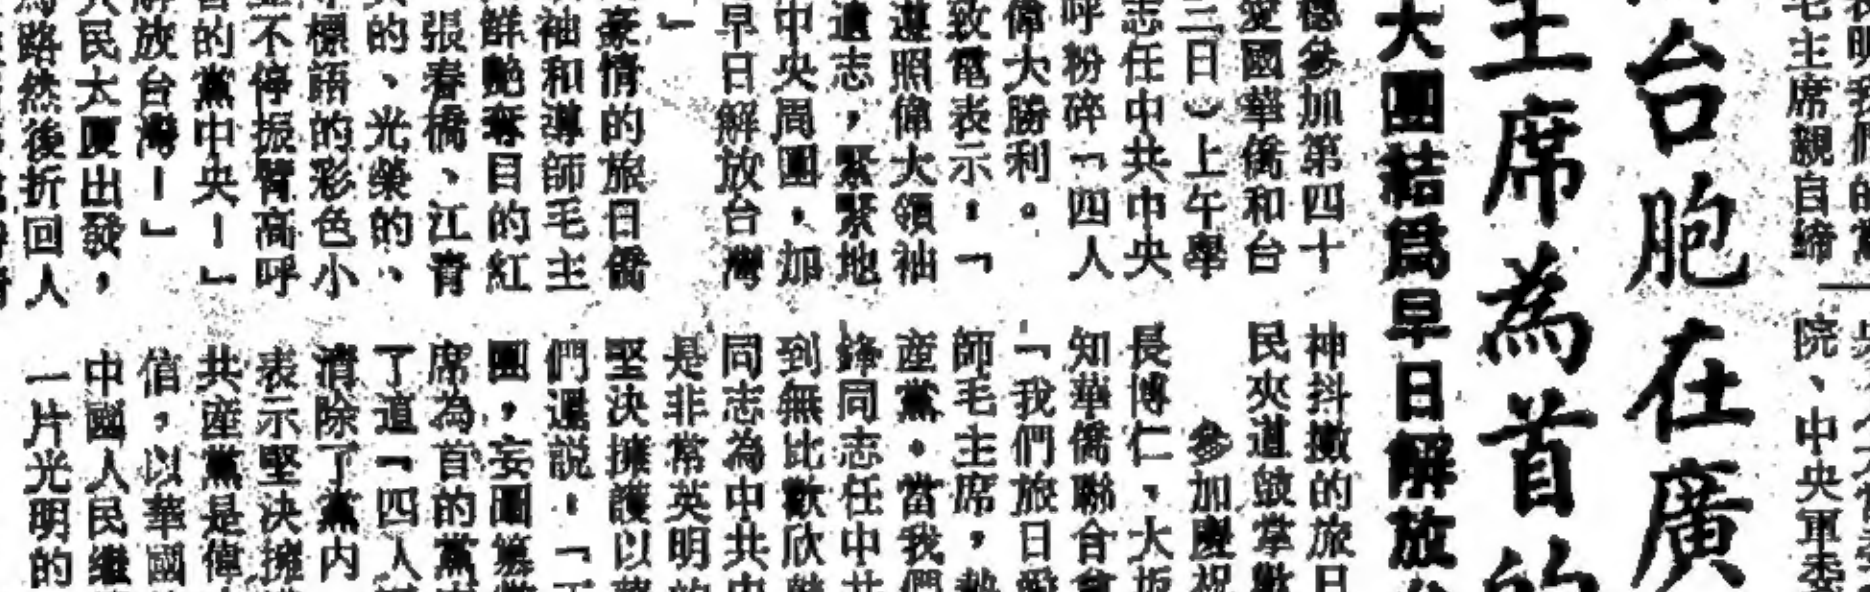 表明我們的黨
毛主席親自締
院、中央軍委
台胞在廣
主席為首的
大團結爲早日解放
穗參加第四十
愛國華僑和台
三日︶上午舉
志任中共中央
呼粉碎「四人
偉大勝利。
致電表示：「
遵照偉大領袖
遺志，緊緊地
中央周圍，加
早日解放台灣
」
豪情的旅日僑
袖和導師毛主
鮮艷奪目的紅
張春橋、江青
的、光榮的、
標語的彩色小
不停振臂高呼
的黨中央！」
解放台灣！」
人民大厦出發，
路然後折回人
神抖擻的旅日
民夾道鼓掌歡
參加慶祝
長博仁，大坂
知華僑聯合會
「我們旅日愛
師毛主席，熱
產黨。當我們
鋒同志任中共
到無比歡欣
同志為中共中
是非常英明的
堅決擁護以華
們還説：「
團，妄圖篡黨
席為首的黨
了這「四人
清除了黨内
表示堅決擁
共產黨是偉
信，以華國
中國人民繼
一片光明的